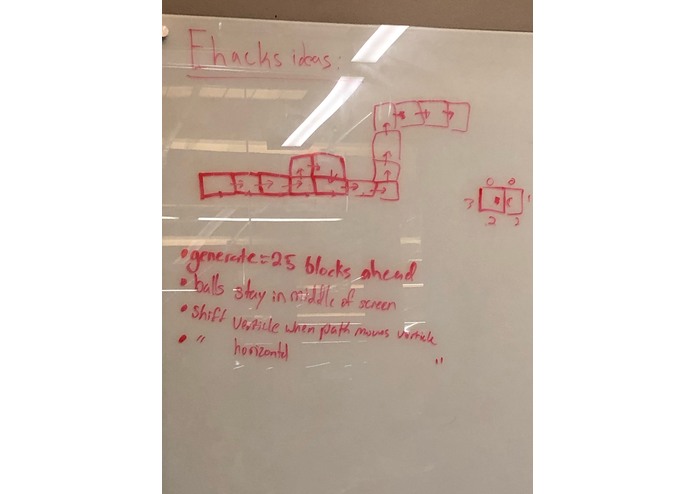 Ehacks ideas:
0 0
3 1
2 2
• generate = 25 blocks ahead
• balls stay in middle of screen
• shift verticle when path moves verticle
• " horizontal "